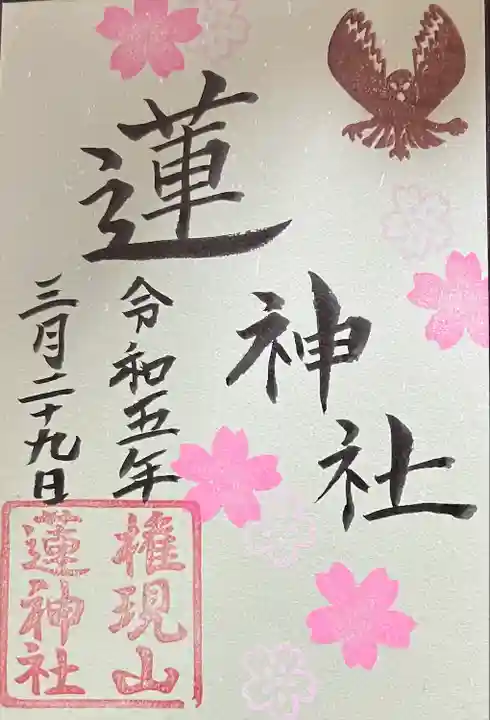 蓮神社
令和五年
三月二十九日
権現山
蓮神社